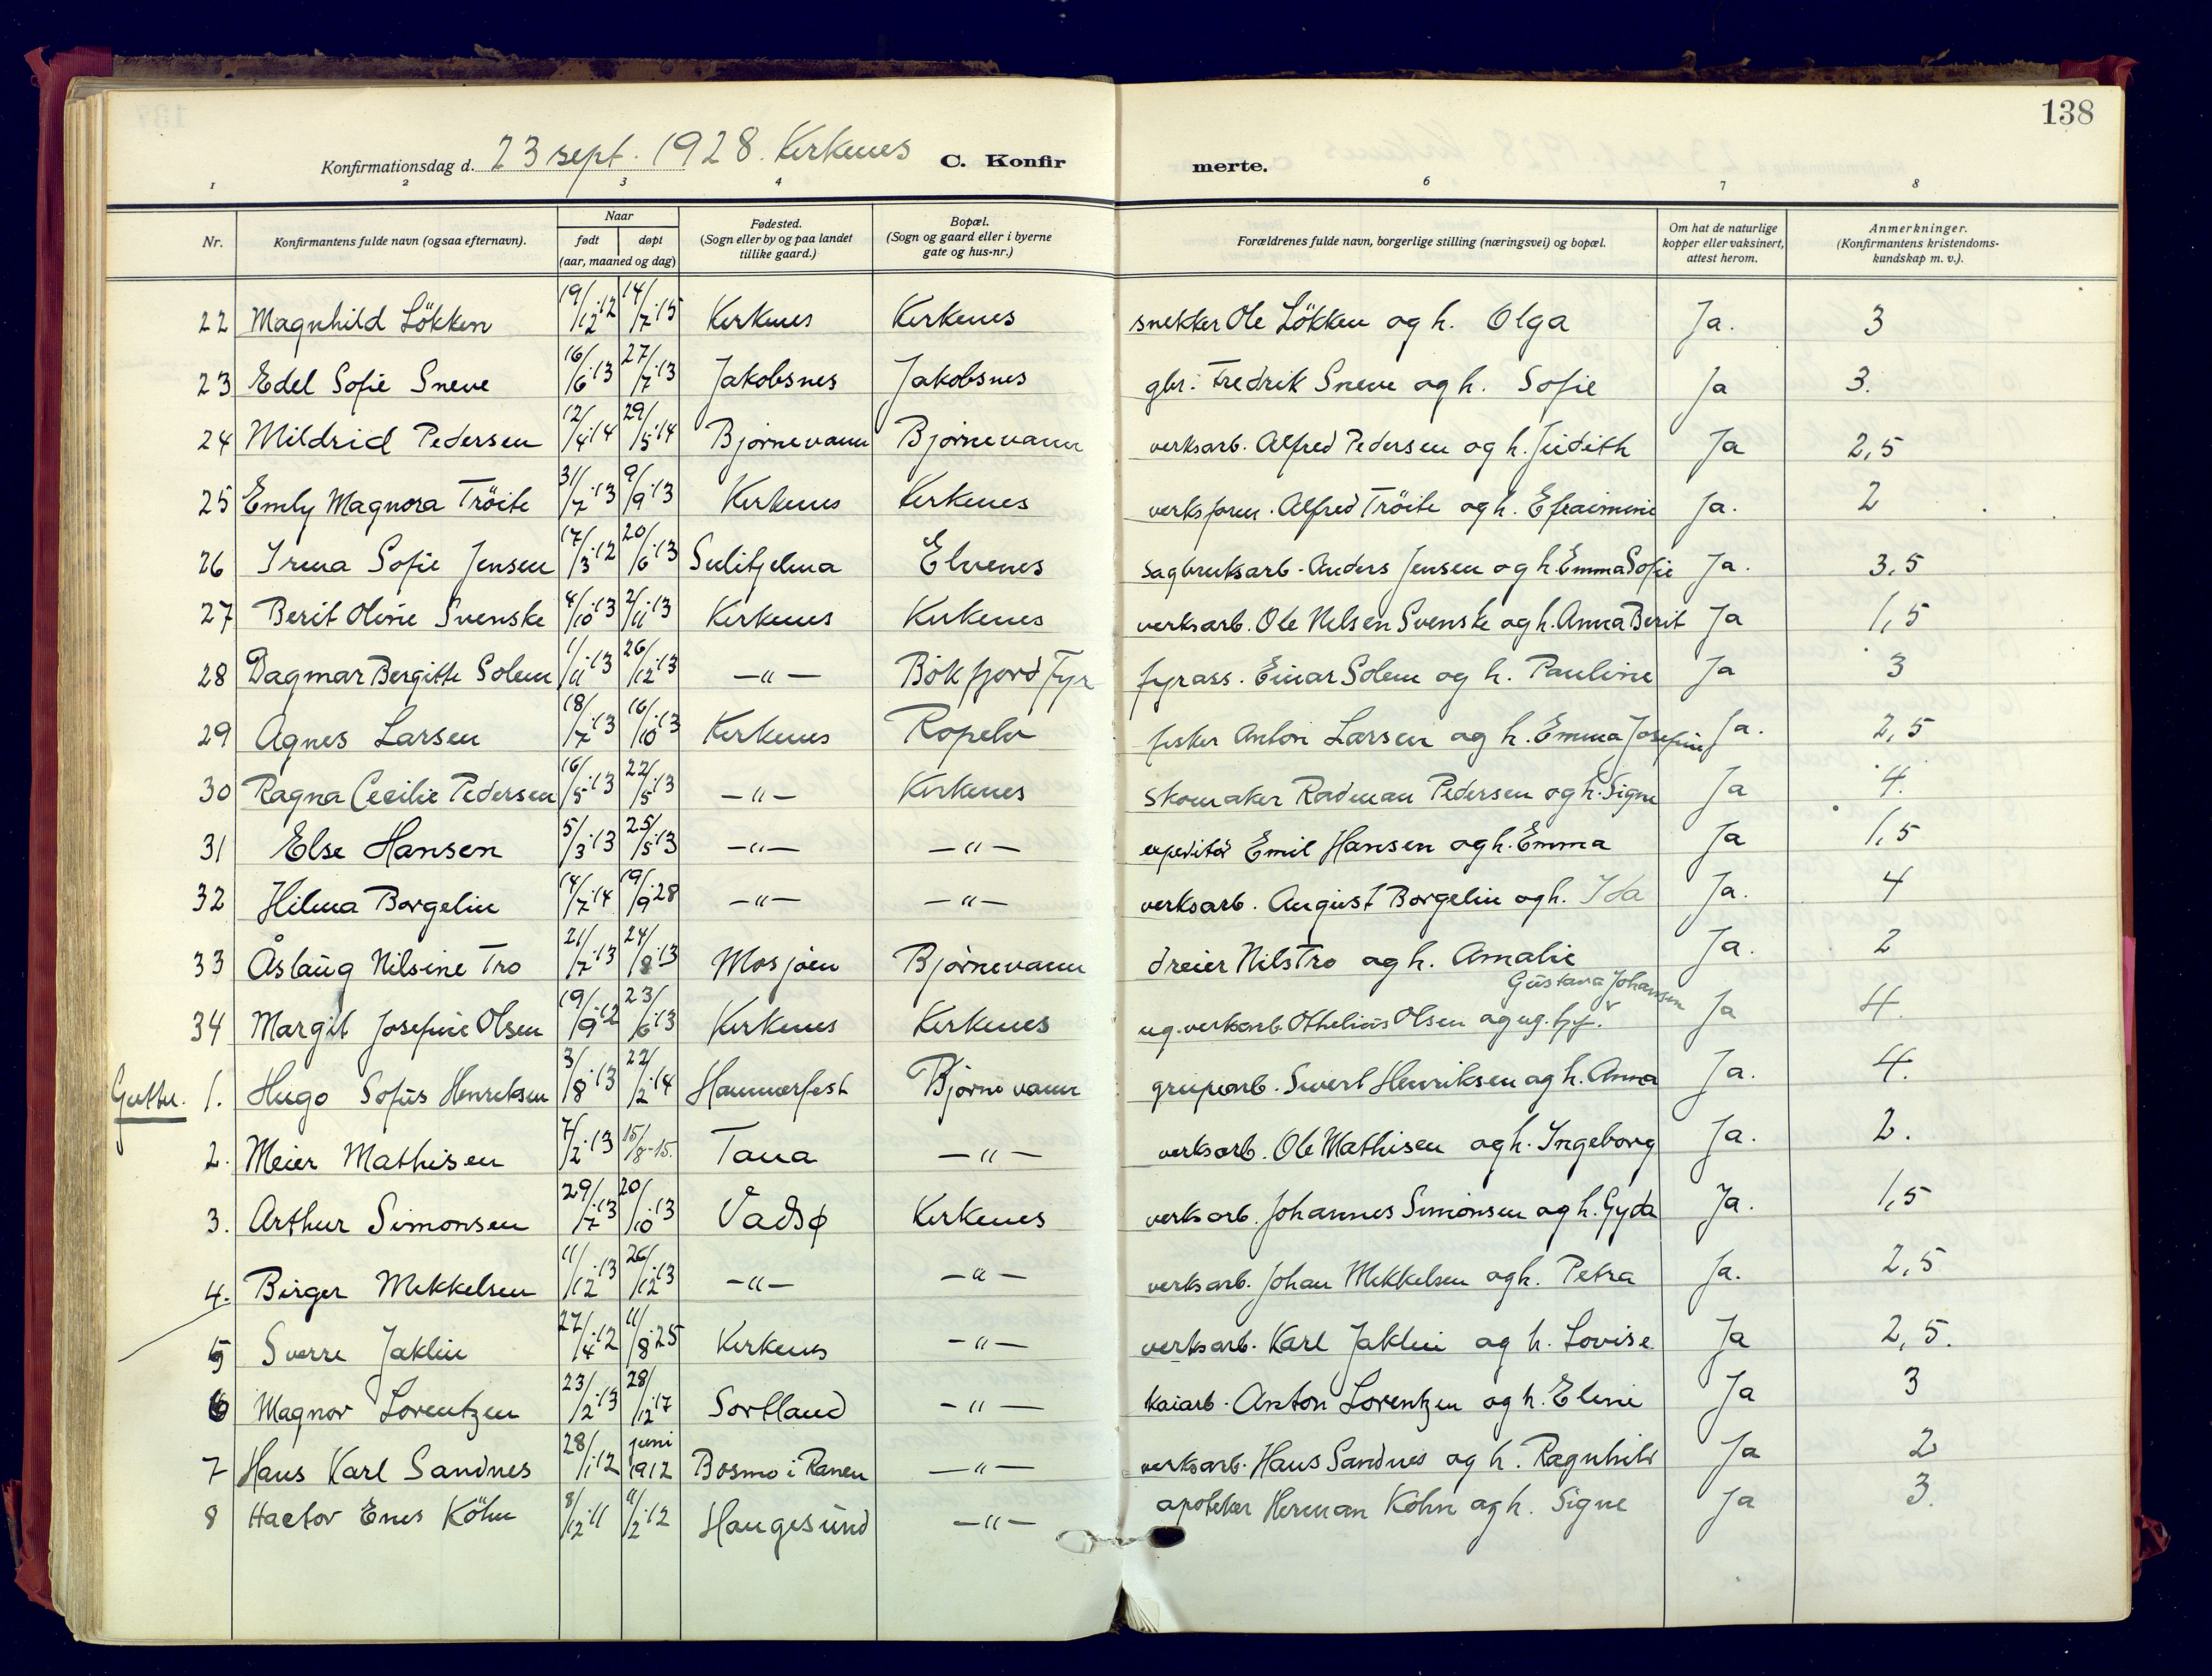 138
Konfirmationsdag d. 23 sept. 1928. Kirkenes C. Konfir merte.
1 2 3 4 6 7 8
Nr. Konfirmantens fulde navn (ogsaa efternavn). Naar født døpt (aar, maaned og dag) Fødested. (Sogn eller by og paa landet tillike gaard.) Bopæl. (Sogn og gaard eller i byerne gate og hus-nr.) Forældrenes fulde navn, borgerlige stilling (næringsvei) og bopæl. Om hat de naturlige kopper eller vaksinert, attest herom. Anmerkninger. (Konfirmantens kristendomskundskap m. v.).
22 Magnhild Lökken 19/12-12 14/7-15 Kirkenes Kirkenes snekker Ole Lökken og h. Olga Ja. 3
23 Edel Sofie Sneve 16/6-13 27/7-13 Jakobsnes Jakobsnes gbr. Fredrik Sneve og h. Sofie Ja 3.
24 Mildrid Pedersen 12/4-14 29/5-14 Bjørnevann Bjørnevann verksarb. Alfred Pedersen og h. Judith Ja 2,5
25 Emly Magnora Tröite 31/7-13 9/9-13 Kirkenes Kirkenes verksform. Alfred Tröite og h. Efraimine Ja. 2
26 Irena Sofie Jensen 17/3-12 20/6-13 Sulitjelma Elvenes sagbruksarb. Anders Jensen og h. Emma Sofie Ja. 3,5
27 Berit Oline Svenske 4/10-13 2/11-13 Kirkenes Kirkenes verksarb. Ole Nelsen Svenske og h. Anna Berit Ja 1,5
28 Dagmar Bergitte Solem 1/11-13 26/12-13 —"— Bökfjord Fyr fyrass. Einar Solem og h. Pauline Ja 3
29 Agnes Larsen 18/7-13 16/10-13 Kirkenes Ropelv fisker Anton Larsen og h. Emma Josefine Ja. 2,5
30 Ragna Cecilie Pedersen 16/5-13 22/5-13 —"— Kirkenes skomaker Radman Pedersen og h. Signe Ja 4.
31 Else Hansen 5/3-13 25/5-13 —"— —"— expeditör Emil Hansen og h. Emma Ja 1,5
32 Hilma Borgelin 14/7-14 19/9-28 —"— —"— verksarb. August Borgelin og h. Ida Ja. 4
33 Åslaug Nilsine Tro 21/7-13 24/8-13 Mosjøen Bjørnevann dreier Nils Tro og h. Amalie Ja. 2
Gustava Johansen
34 Margit Josefine Olsen 19/9-12 23/6-13 Kirkenes Kirkenes ug. verksarb. Othelius Olsen og ug. Ja 4.
Gutter. 1. Hugo Sofus Henriksen 3/8-13 22/2-14 Hammerfest Bjørnevann grupearb. Sivert Henriksen og h. Anna Ja. 4.
2. Meier Mathisen 7/2-13 15/8-15. Tana —"— verksarb. Ole Mathisen og h. Ingeborg Ja. 2.
3. Arthur Simonsen 29/7-13 20/10-13 Vadsø Kirkenes verksarb. Johannes Simonsen og h. Gyda Ja. 1,5
4. Birger Mikkelsen 11/12-13 26/12-13 —"— —"— verksarb. Johan Mikkelsen og h. Petra Ja. 2,5
5 Sverre Jaklin 27/4-12 11/8-25 Kirkenes —"— verksarb. Karl Jaklin og h. Lovise Ja 2,5.
6 Magnor Lorentzen 23/2-13 28/12-17 Sortland —"— kaiarb. Anton Lorentzen og h. Eline Ja 3
7 Hans Karl Sandnes 28/1-12 juni 1912 Bosmo i Ranen —"— verksarb. Hans Sandnes og h. Ragnhild Ja 2
8 Hactor Enes Köhn 8/12-11 11/2-12 Haugesund —"— apoteker Herman Köhn og h. Signe Ja 3.